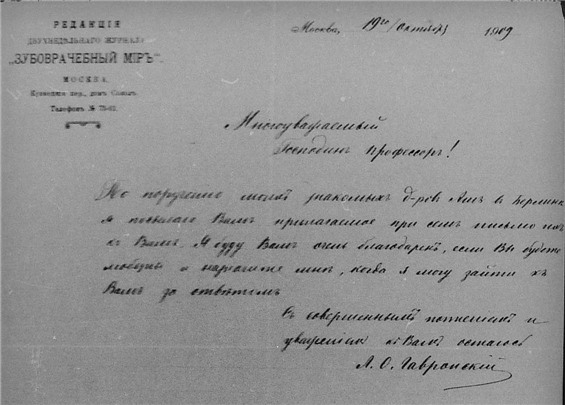 РЕДАКЦІЯ
ДВУХНЕДѢЛЬНАГО ЖУРНАЛА
„ЗУБОВРАЧЕБНЫЙ МІРЪ“.
МОСКВА,
домъ
Телефонъ №
Москва, 19го Октября 1909
Многоуважаемый
Господинъ Профессоръ!
По порученію моихъ знакомыхъ д-ровъ Ашъ въ Берлинѣ
я посылаю Вамъ прилагаемое при семъ письмо
къ Вамъ. Я буду Вамъ очень благодаренъ, если Вы будете
любезны и напишите мнѣ, когда я могу зайти къ
Вамъ за отвѣтомъ
Съ совершеннымъ почтеніемъ и
уваженіемъ къ Вамъ остаюсь
Л. О. Гавронскій